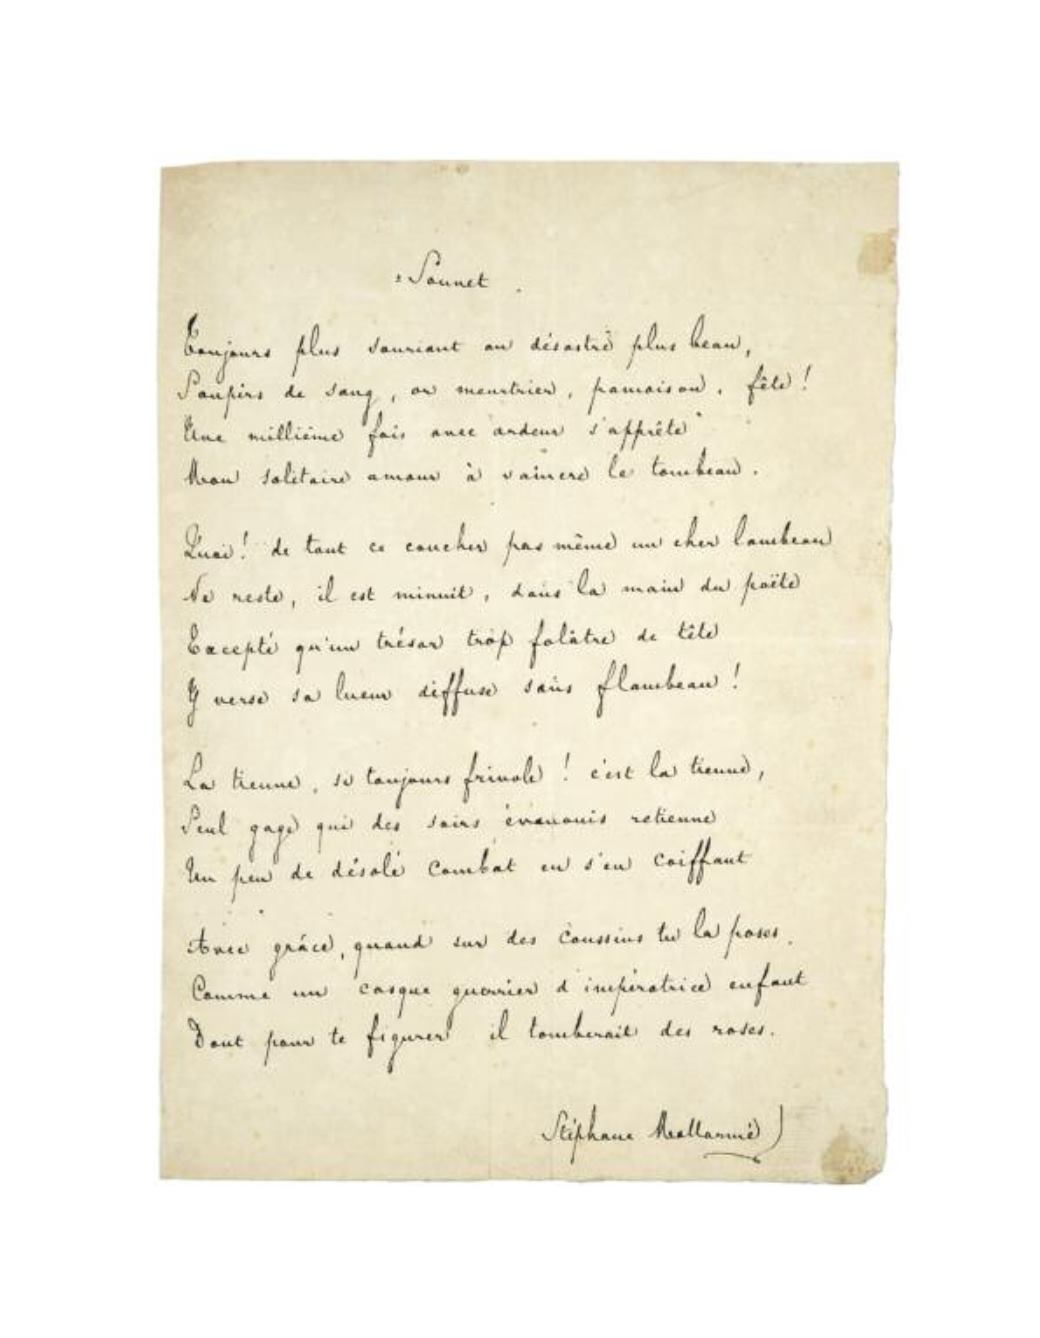 Sonnet.
Toujours plus souriant au désastre plus beau,
Soupirs de sang, or meurtrier, pamaison, fête !
Une millième fois avec ardeur s'apprête
Mon solitaire amour à vaincre le tombeau.
Quoi ! de tout ce coucher pas même un cher lambeau
Ne reste, il est minuit, dans la main du poëte
Excepté qu'un trésor trop folâtre de tête
Y verse sa lueur diffuse sans flambeau !
La tienne, si toujours frivole ! c'est la tienne,
Seul gage qui des soirs évanouis retienne
Un peu de désolé combat en s'en coiffant
Avec grâce, quand sur des coussins tu la poses
Comme un casque guerrier d'impératrice enfant
Dont pour te figurer il tomberait des roses.
Stéphane Mallarmé